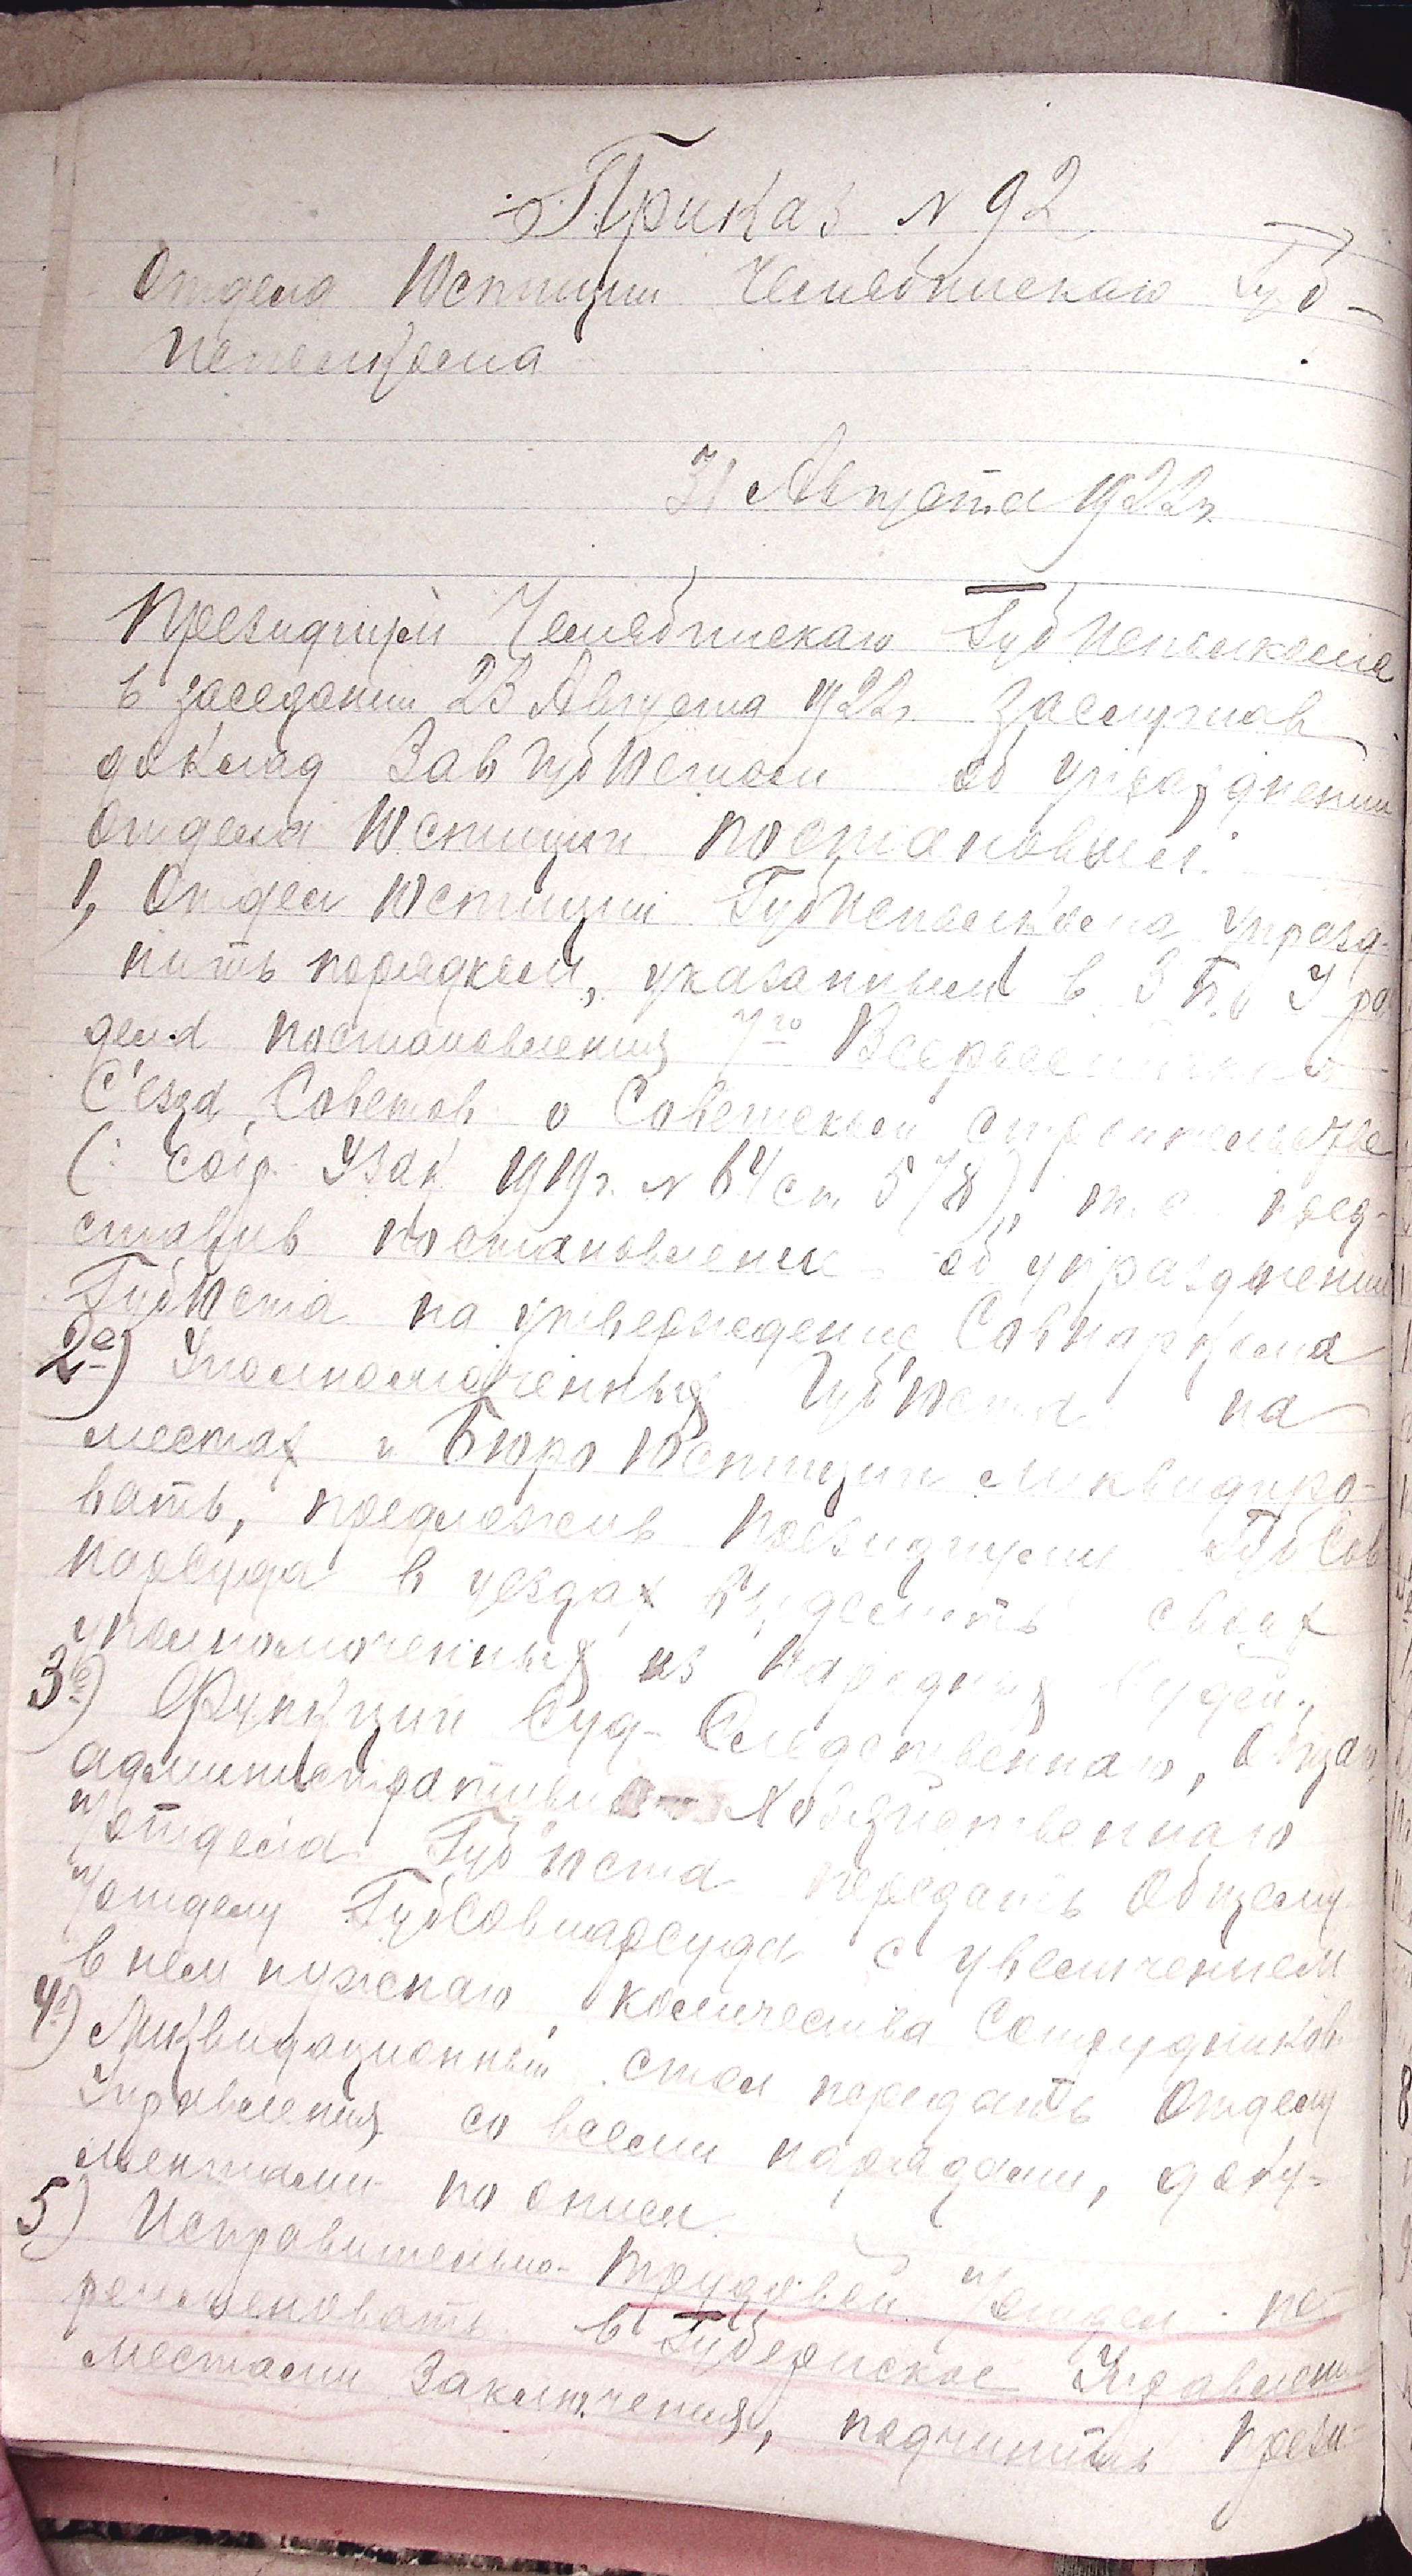 Приказ № 92
Отдела Юстиции Челябинскаго Губ-
исполкома
31 Августа 1922 г.
Президиум Челябинскаго Губисполкома
в заседании 23 Августа 1922 г. заслушав
доклад Завгубюстом об упразднении
Отдела Юстиции постановил:
1, Отдел Юстиции Губисполкома упразд-
нить порядком, указанным в 3 п. б) У ра
дела постановления 7го Всероссийскаго
С'езда Советов о Советском строительстве
(: собр. Узак 1919 г. № 64 ст. 578), т.е. пред-
ставив постановление об упразднении
Губюста на утверждение Совнаркома
2е) Уполномоченных Губюста на
местах и Бюро Юстиции ликвидиро-
вать, предложив Президиуму ГубСов
нарсуда в уездах выделить своих
уполномоченных из Народных Судей.
3е) Функции Суд-Следственнаго, Общаго,
административно- Хозяйственнаго
п/отдела Губ'юста передать Общему
п/отделу Губсовнарсуда с увеличением
в нем нужнаго количества Сотрудников.
4е) Ликвидационный стол передать Отделу
Управления со всеми нарядами, доку-
ментами по описи.
5) Исправительно-Трудовой п/отдел пе-
реименовать в Губернское Управлени
местами Заключения, подчинить Прези-